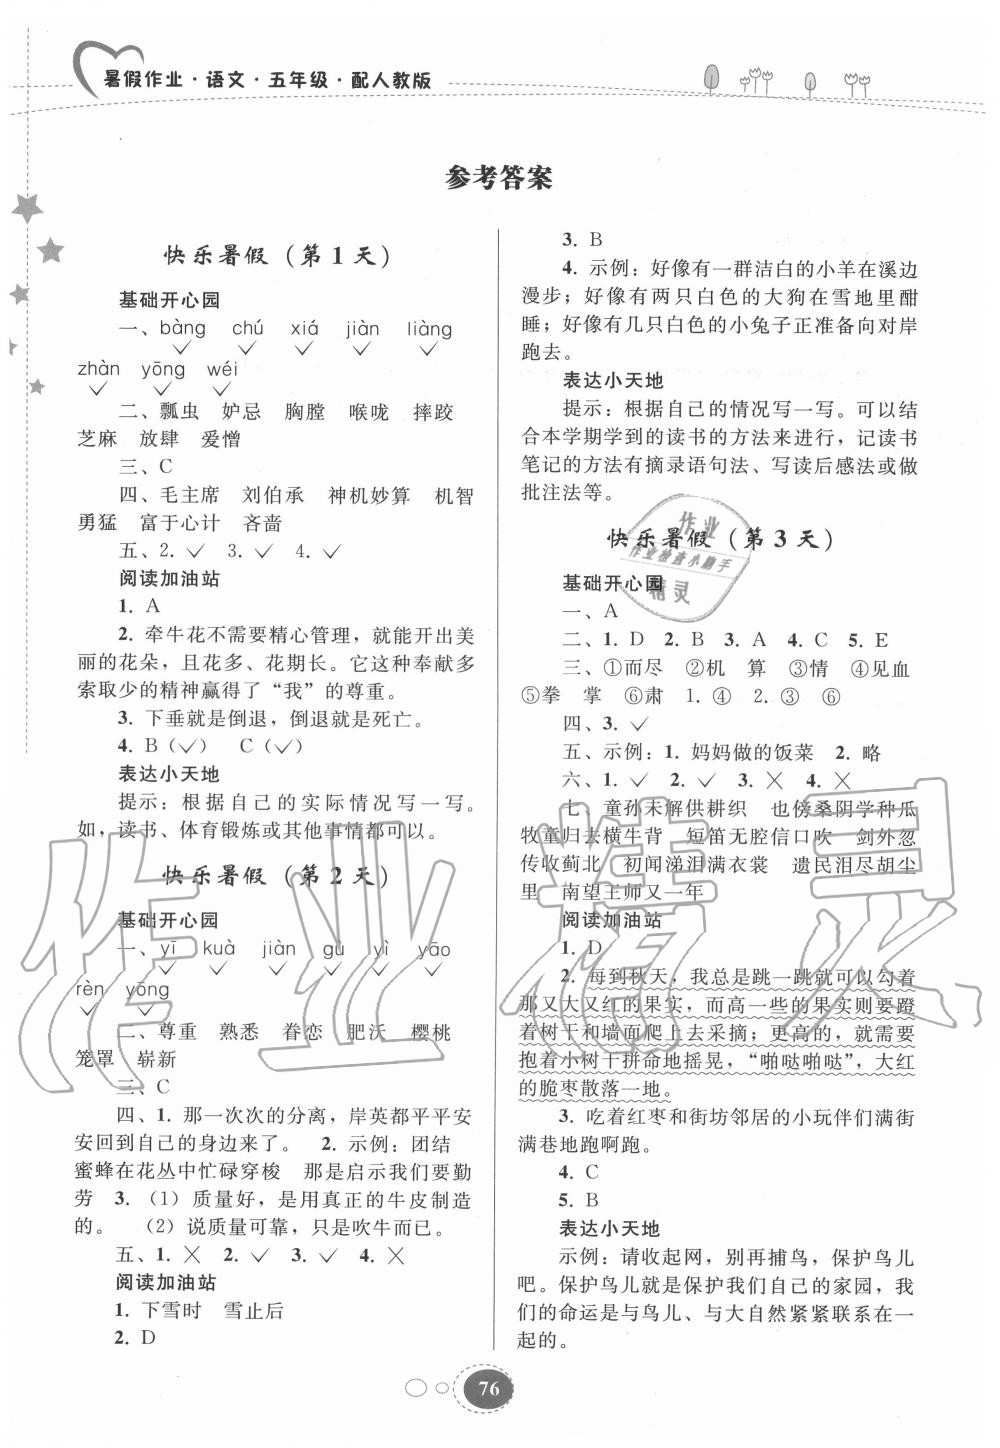 暑假作业·语文·五年级·配人教版
参考答案
快乐暑假（第1天）
基础开心园
一、bàng chú xiá jiàn liàng
✓ ✓ ✓ ✓ ✓
zhàn yōng wéi
✓ ✓ ✓
二、瓢虫 妒忌 胸膛 喉咙 摔跤
芝麻 放肆 爱憎
三、C
四、毛主席 刘伯承 神机妙算 机智
勇猛 富于心计 吝啬
五、2. ✓ 3. ✓ 4. ✓
阅读加油站
1. A
2. 牵牛花不需要精心管理，就能开出美
丽的花朵，且花多、花期长。它这种奉献多
索取少的精神赢得了“我”的尊重。
3. 下垂就是倒退，倒退就是死亡。
4. B（✓） C（✓）
表达小天地
提示：根据自己的实际情况写一写。
如，读书、体育锻炼或其他事情都可以。
快乐暑假（第2天）
基础开心园
一、yī kuà jiàn gù yì yāo
✓ ✓ ✓ ✓ ✓ ✓
rèn yōng
✓ ✓
二、尊重 熟悉 眷恋 肥沃 樱桃
笼罩 崭新
三、C
四、1. 那一次次的分离，岸英都平平安
安回到自己的身边来了。 2. 示例：团结
蜜蜂在花丛中忙碌穿梭 那是启示我们要勤
劳 3.（1）质量好，是用真正的牛皮制造
的。 （2）说质量可靠，只是吹牛而已。
五、1. ✕ 2. ✓ 3. ✓ 4. ✕
阅读加油站
1. 下雪时 雪止后
2. D
3. B
4. 示例：好像有一群洁白的小羊在溪边
漫步；好像有两只白色的大狗在雪地里酣
睡；好像有几只白色的小兔子正准备向对岸
跑去。
表达小天地
提示：根据自己的情况写一写。可以结
合本学期学到的读书的方法来进行，记读书
笔记的方法有摘录语句法、写读后感法或做
批注法等。
快乐暑假（第3天）
基础开心园
一、A
二、1. D 2. B 3. A 4. C 5. E
三、①而尽 ②机 算 ③情 ④见血
⑤拳 掌 ⑥肃 1. ④ 2. ③ ⑥
四、3. ✓
五、示例：1. 妈妈做的饭菜 2. 略
六、1. ✓ 2. ✓ 3. ✕ 4. ✕
七、童孙未解供耕织 也傍桑阴学种瓜
牧童归去横牛背 短笛无腔信口吹 剑外忽
传收蓟北 初闻涕泪满衣裳 遗民泪尽胡尘
里 南望王师又一年
阅读加油站
1. D
2. 每到秋天，我总是跳一跳就可以勾着
那又大又红的果实，而高一些的果实则要蹬
着树干和墙面爬上去采摘；更高的，就需要
抱着小树干拼命地摇晃，“啪哒啪哒”，大红
的脆枣散落一地。
3. 吃着红枣和街坊邻居的小玩伴们满街
满巷地跑啊跑。
4. C
5. B
表达小天地
示例：请收起网，别再捕鸟，保护鸟儿
吧。保护鸟儿就是保护我们自己的家园，我
们的命运是与鸟儿、与大自然紧紧联系在一
起的。
作业
作业检查小助手
精灵
作业精灵
76